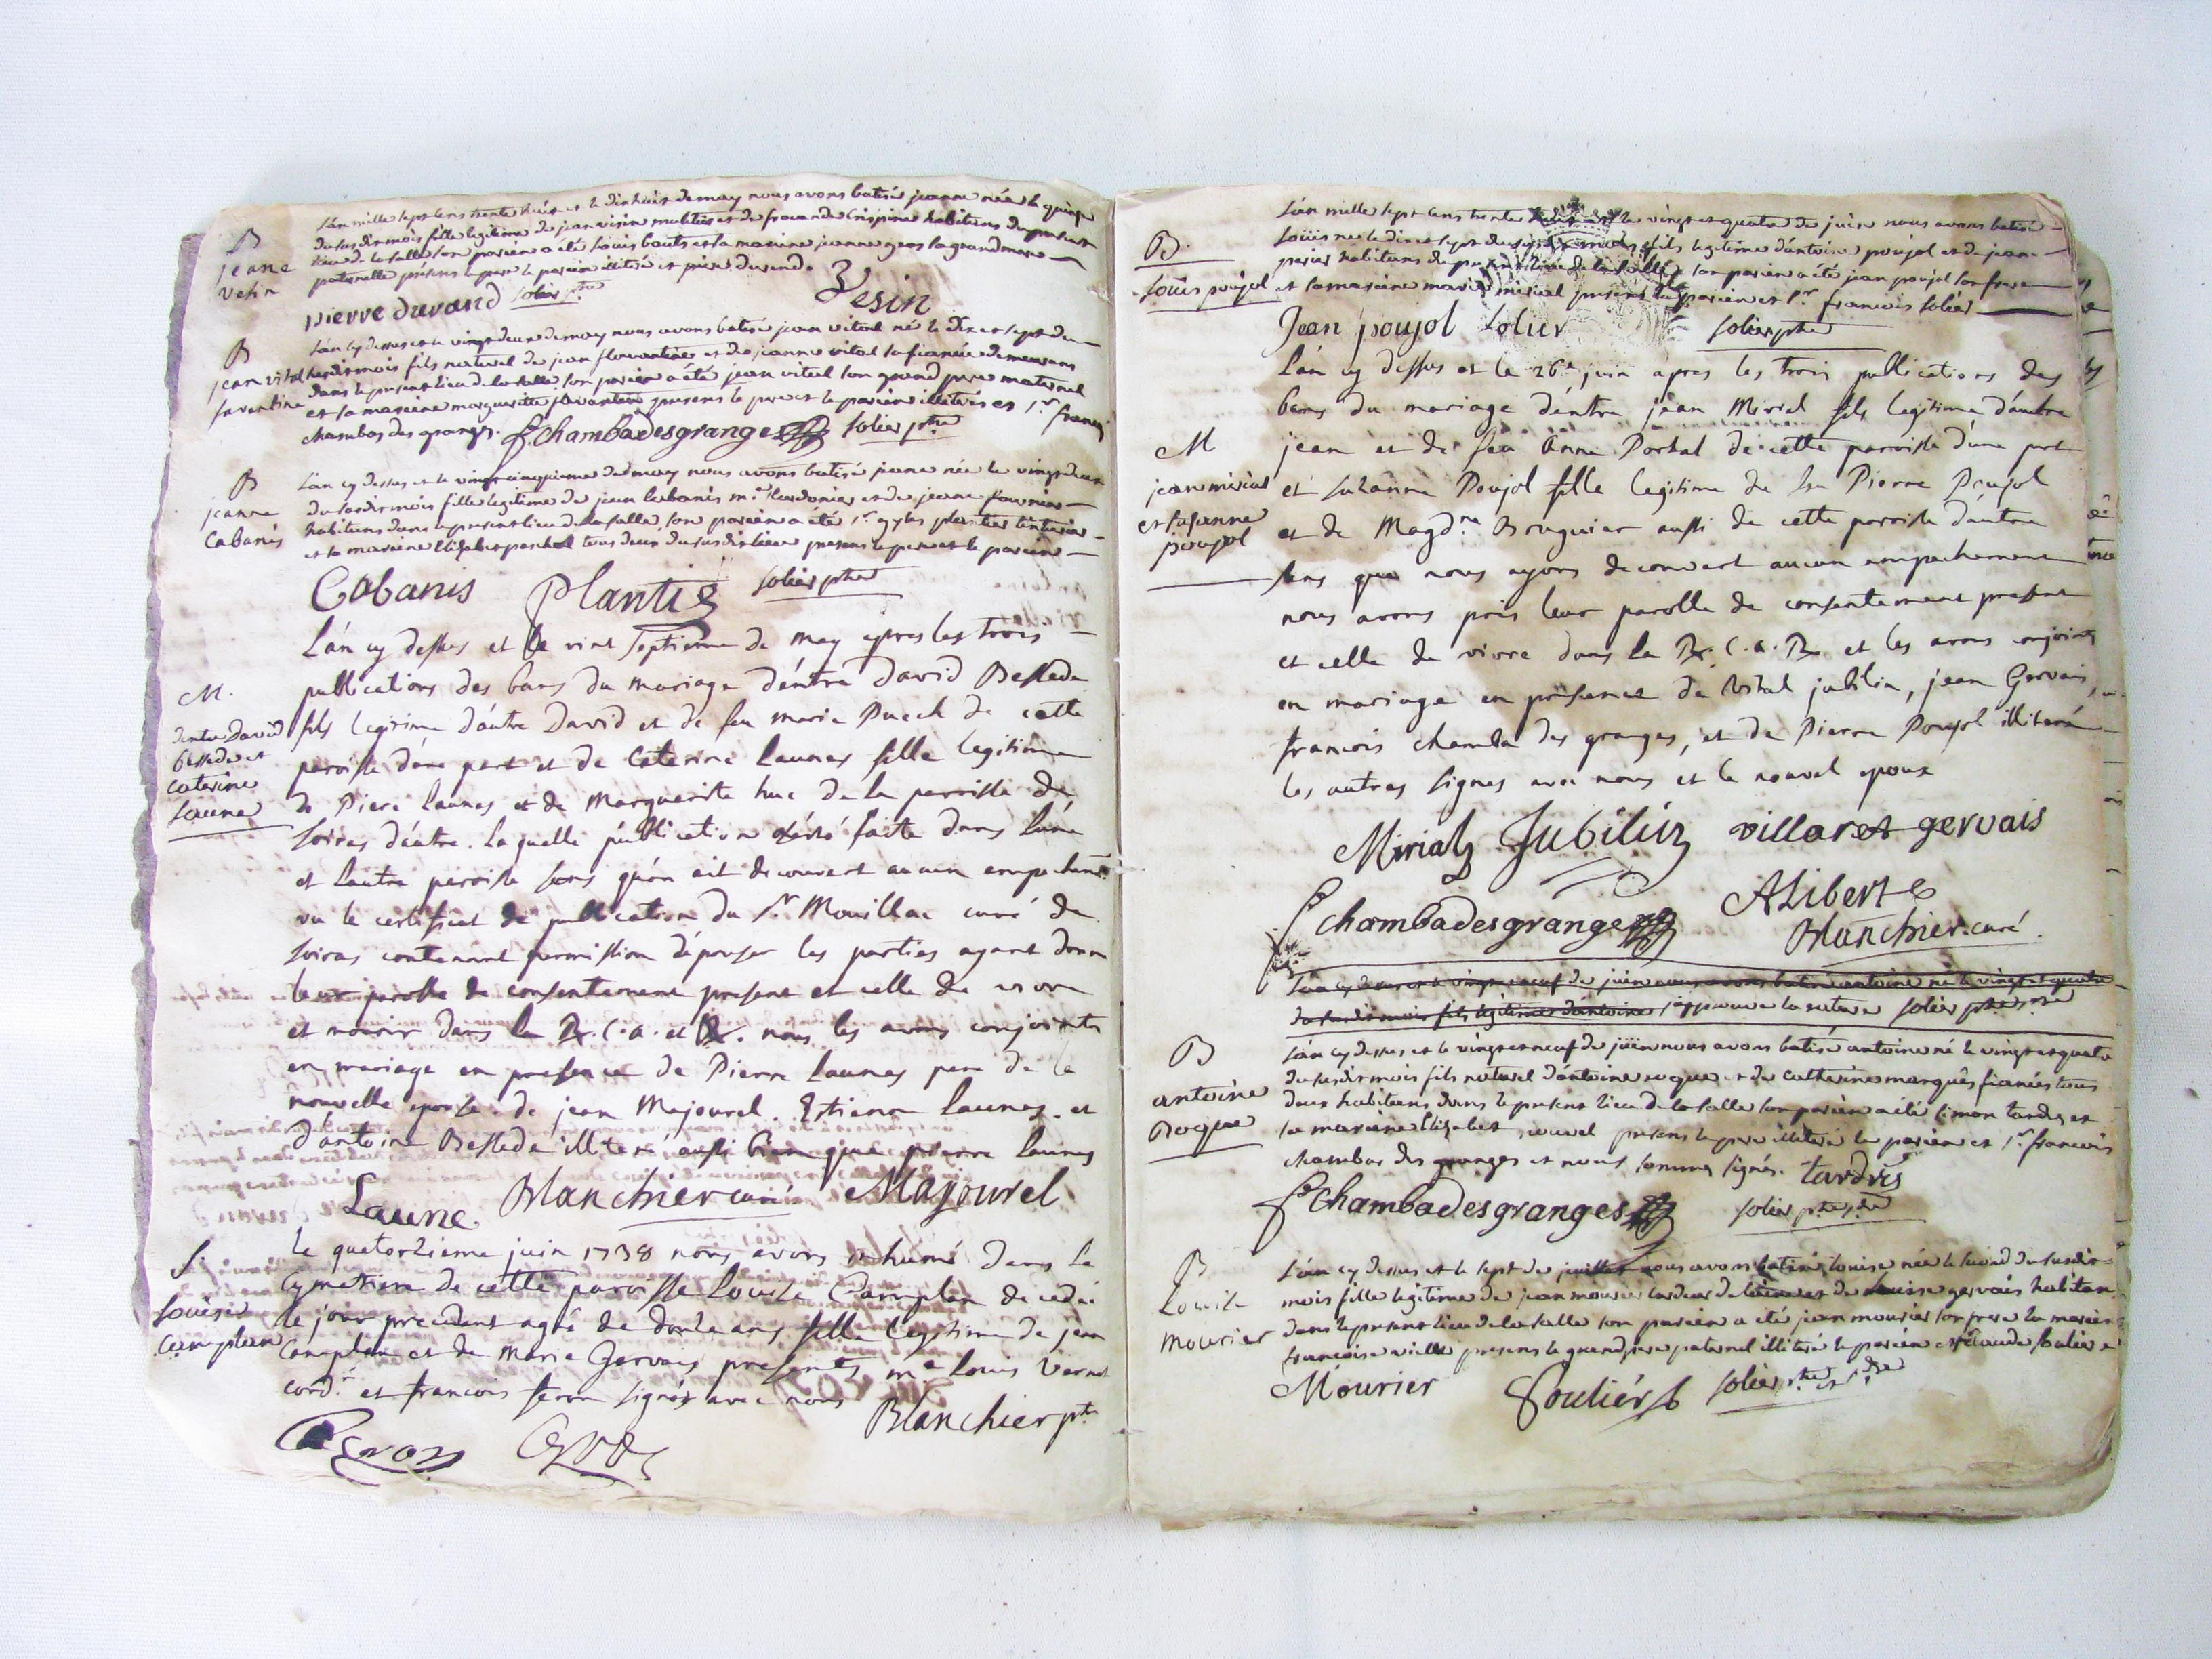 B
jeane
vesin
Lán mille sept cens trente huit et le dix huit de may nous avons batisé jeanne née le quinze
du susdit mois fille legitime de jean vesin et de habitans du present
lieu de la salle son parrein a été Louis bouts et la mareine jeanne gers la grand mere
paternelle présens le pere le parein illitéré et pierre durand.
pierre durand solier ptre Vesin
B
jean vital
Lán cy dessus et le vingt deux de may nous avons batisé jean vital né le dix et sept du
susdit mois fils naturel de jean flavantine et de jeanne vital sa fiancée demeurans
dans le present lieu de la salle, son parein a été jean vital son grand pere maternel
et sa mareine marguerite presens le pere et le parein illitérés et sr françois
chambas des granges. fchambadesgranges solier ptre
B
jeanne
Cabanis
Lán cy dessus et le vingt cinquieme de may nous avons batisé jeane née le vingt deux
du susdit mois fille legitime de jean Cabanis me Cardonier et de jeanne fournier
habitans dans le present lieu de la salle, son parein a été sr
et sa mareine Elizabet paschal tous deux du susdit lieu presens le pere et le parein
Cabanis Plantié solier ptre
M.
dentre David
bessede et
caterine
Laune
Lán cy dessus et le vint septieme de may apres les trois
publications des bans du mariage déntre David Bessede
fils legitime dáutre David et de feu marie Puech de cette
paroisse dúne part et de Caterine Launes fille legitime
de Piere Launes et de Marguerite huc de la parroisse de
soiras dáutre. laquelle publication a été faite dans lúne
et lautre paroisse sans qúon ait decouvert aucun empechemt
vu le certificat de publication du Sr Mouillac curé de
soiras contenant permission dépouser les parties ayant donné
leur parolle de consentement present et celle de vivre
et mourir dans la R. C. a. et R. nous les avons conjoints
en mariage en presence de Pierre Launes pere de la
nouvelle epouse. de jean Majourel. Estienne Launes. et
dántoine Bessede illiteré aussi bien que pierre Launes
Laune Blanchier curé Majourel
S
Louise
Camplan
le quatorzieme juin 1738 nous avons inhumé dans le
cymetiere de cette paroisse Louise Camplan decedée
le jour precedent agée de douze ans fille legitime de jean
Camplan et de Marie Gervais presents me Louis Vernet
cord.r et francois feron signés avec nous
Blanchier ptre
B.
Loüis poujol
Lán mille sept cens trente huit et le vingt et quatre de juin nous avons batisé
Loüis né le dix et sept du susdit mois fils legitime dántoine poujol et de jeane
perier habitans du present lieu de la salle son parein a été jean poujol son frere
et sa mareine marie mirial presens le parein et sr francois solier
Jean poujol Solier solier ptre
M
jean mirial
et susanne
poujol
Lán cy dessus et le 26e juin apres les trois publications des
bans du mariage déntre jean Mirial fils legitime dáutre
jean et de feu Anne Portal de cette paroisse dúne part
et suzanne Poujol fille legitime de feu Pierre Poujol
et de Magdne Bruguier aussi de cette paroisse dáutre
sans que nous ayons decouvert aucun empechement
nous avons pris leur parolle de consentement present
et celle de vivre dans la R. C. a. R. et les avons conjoints
en mariage en presence de Vital jubilin, jean Gervais,
francois chamba des granges, et de Pierre Poujol illiteré
les autres signes avec nous et le nouvel epoux
Mirial Jubilin villaret gervais
fchambadesgranges ALibert
Blanchier curé.
Lán cy dessus et le vingt neuf de juin nous avons batisé antoine né le vingt et quatre
du susdit mois fils légitime dántoine j'approuve la rature solier ptre
B
antoine
Rocque
Lán cy dessus et le vingt et neuf de jüin nous avons batisé antoine né le vingt et quatre
du susdit mois fils naturel dántoine rocque et de catherine marqués fiancés tous
deux habitans dans le present lieu de la salle son parein a été simon tardres et
sa mareine Elizabet nouvel presens le pere illiteré le parein et sr francois
chambas des granges et nous sommes signés. tardres
fchambadesgranges solier ptre
B
Louise
mourier
Lán cy dessus et le sept de juillet nous avons batisé Louise née le second du susdit
mois fille legitime de jean mourier cardeur de laine et de Louise gervais habitans
dans le present lieu de la salle son parein a été jean mourier son frere la mareine
francoise presens le grand pere paternel illiteré le parein et Claude soulier
Mourier Souliér solier ptre